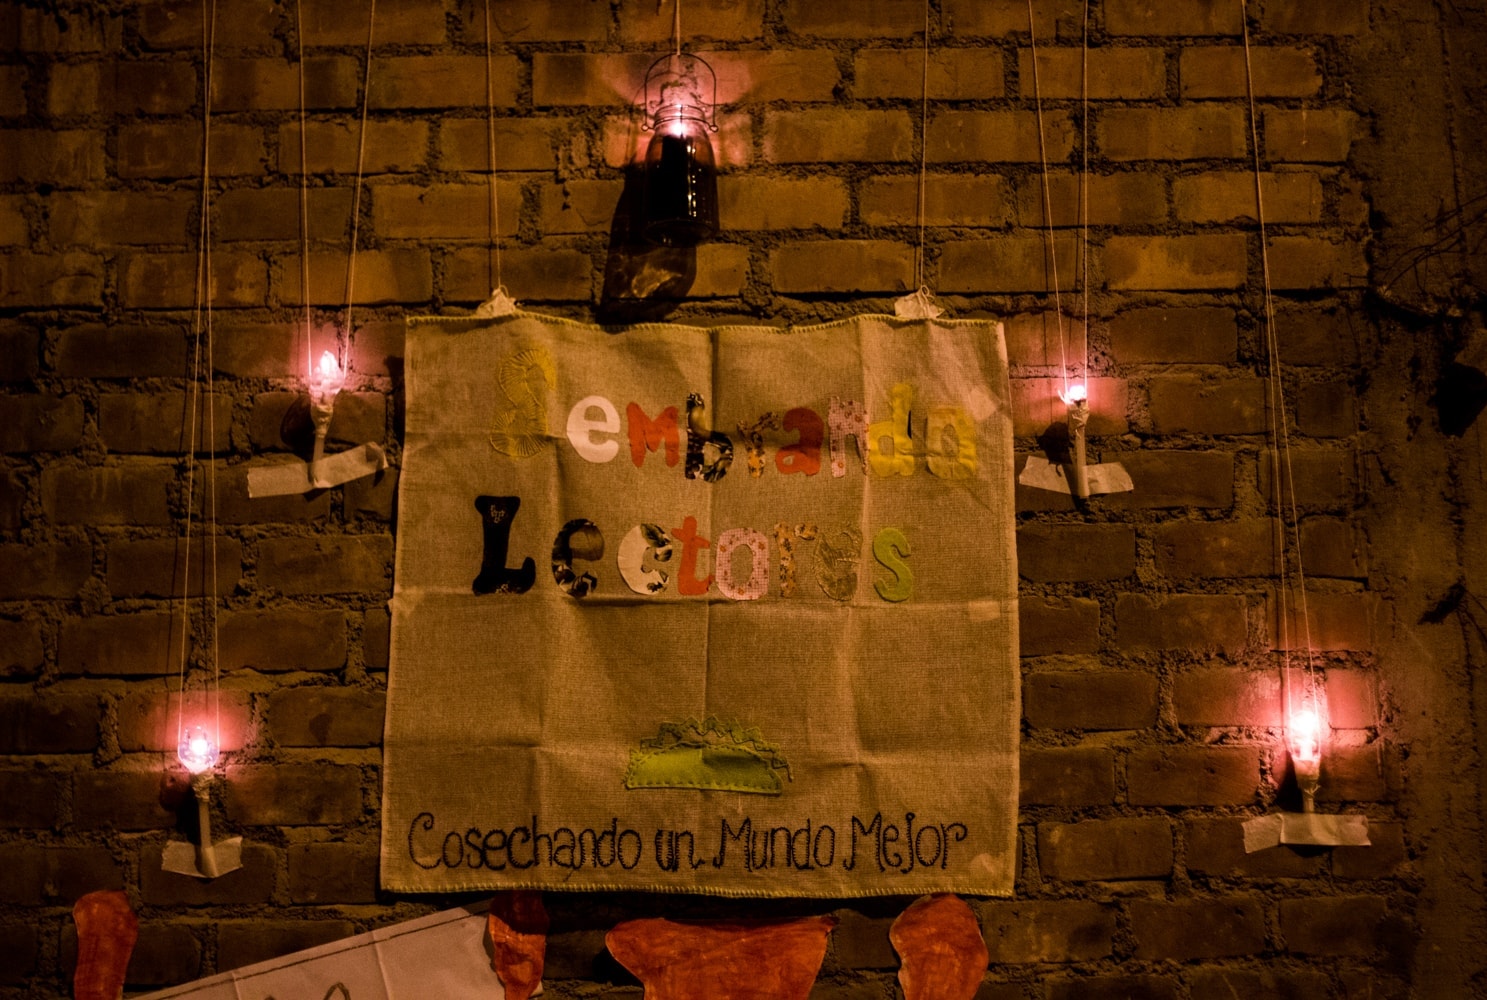 Sembrando
Lectores
Cosechando un Mundo Mejor